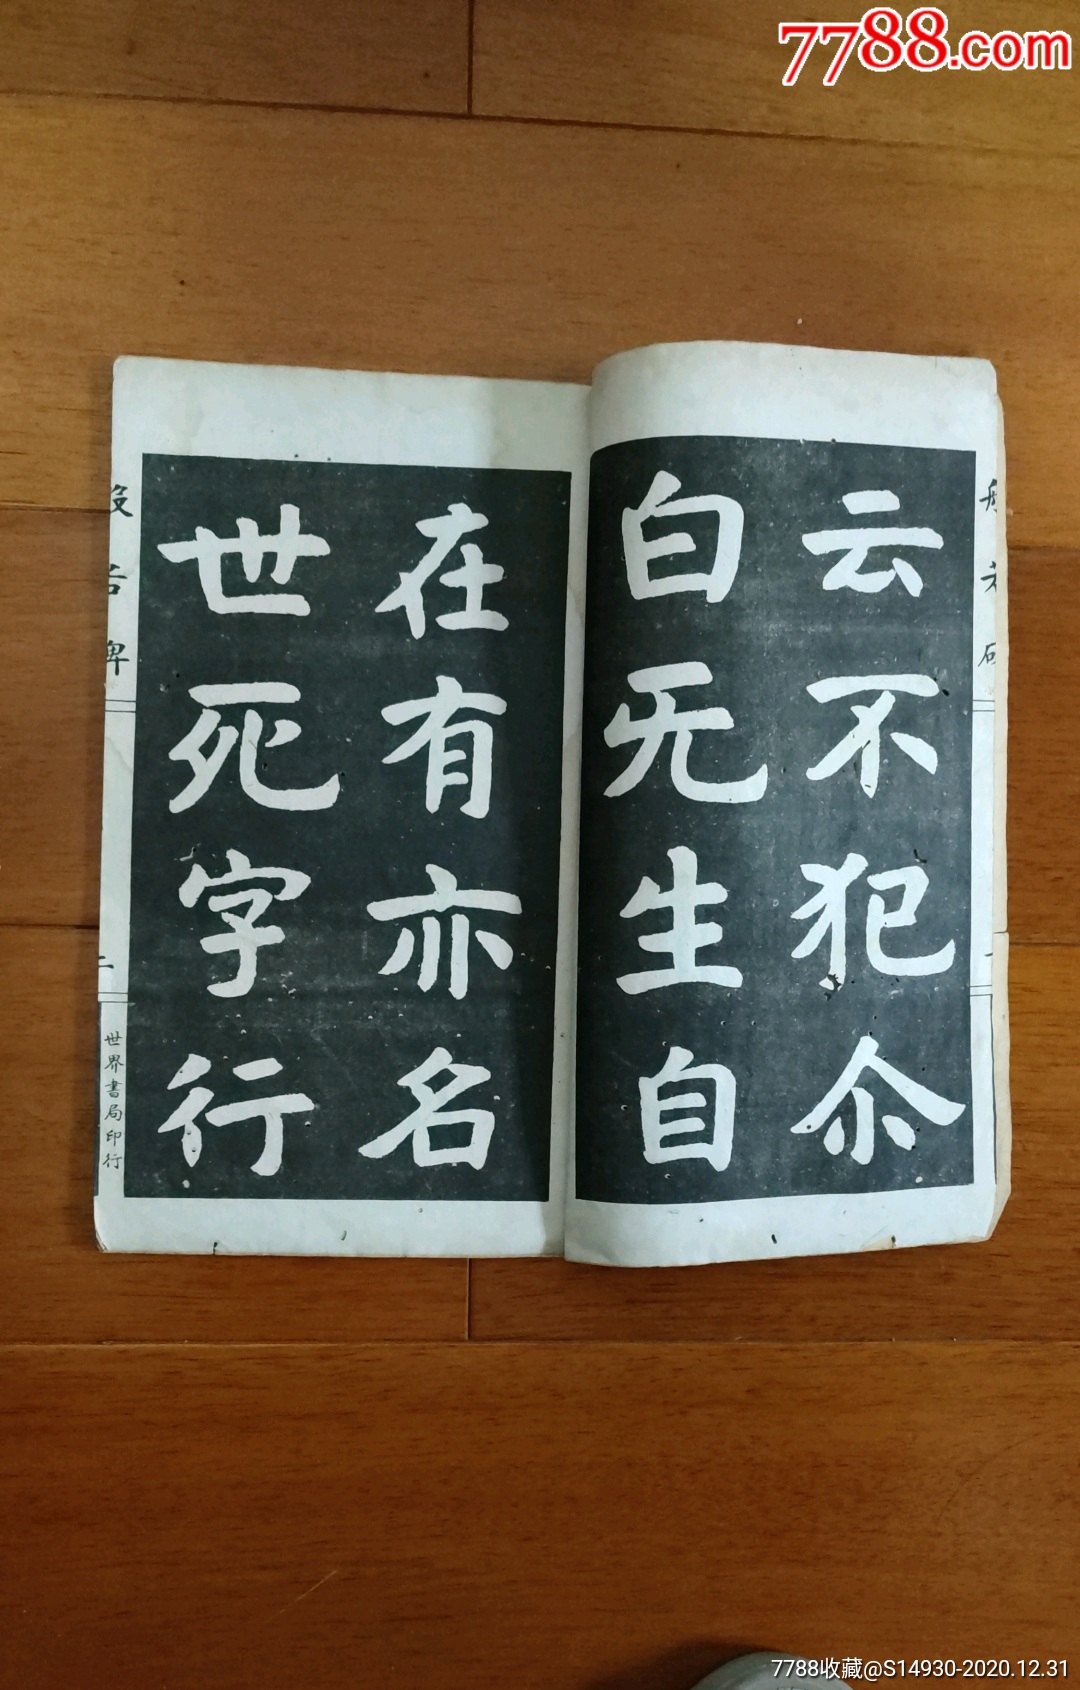 7788.com
般若碑
云不犯尒
白无生自
在有亦名
世死字行
般若碑
二
世界書局印行
7788收藏@S14930-2020.12.31